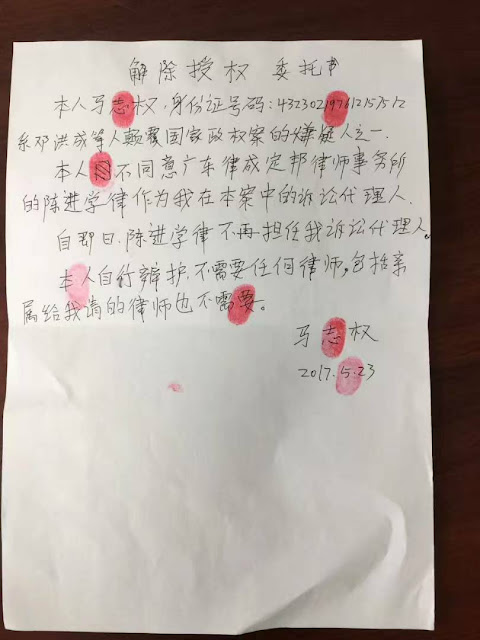 解除授权 委托书
本人马志权,身份证号码:432302197612157512
系邓洪成等人颠覆国家政权案的嫌疑人之一.
本人不同意广东律成定邦律师事务所
的陈进学律作为我在本案中的诉讼代理人.
自即日,陈进学律不再担任我诉讼代理人。
本人自行辩护,不需要任何律师,包括亲
属给我请的律师也不需要。
马志权
2017.5.23